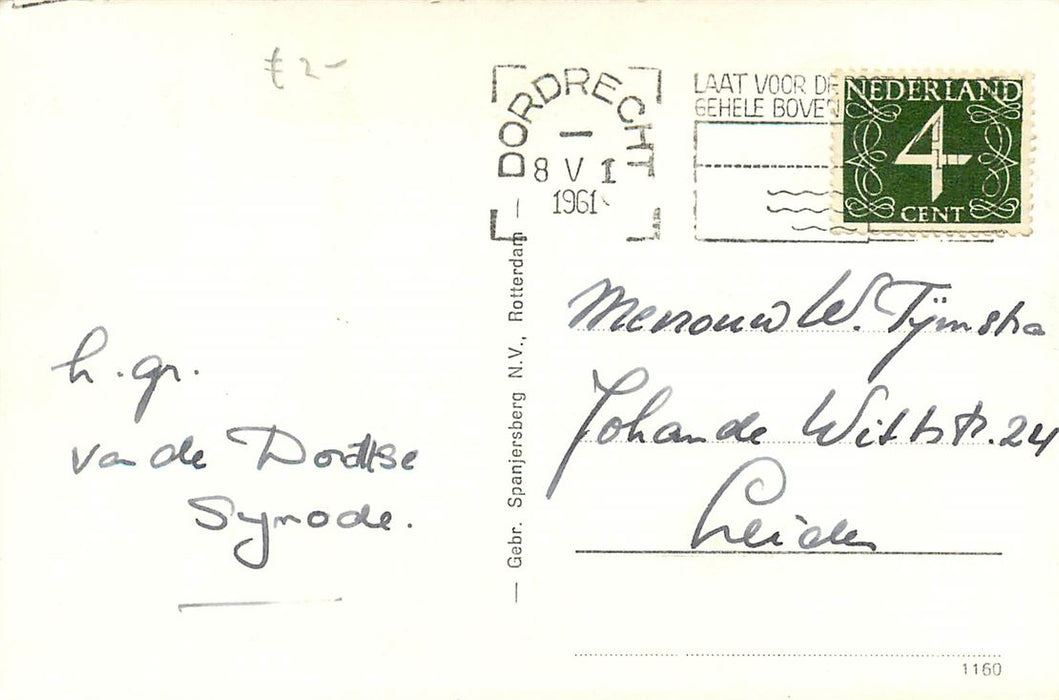 € 2-
DORDRECHT
8 V I
1961
LAAT VOOR DE
GEHELE BOVEN
NEDERLAND
4
CENT
h. gr.
van de Dordtse
Synode.
— Gebr. Spanjersberg N.V., Rotterdam —
Mevrouw W. Tijmstra
Johan de Wittstr. 24
Leiden
1160